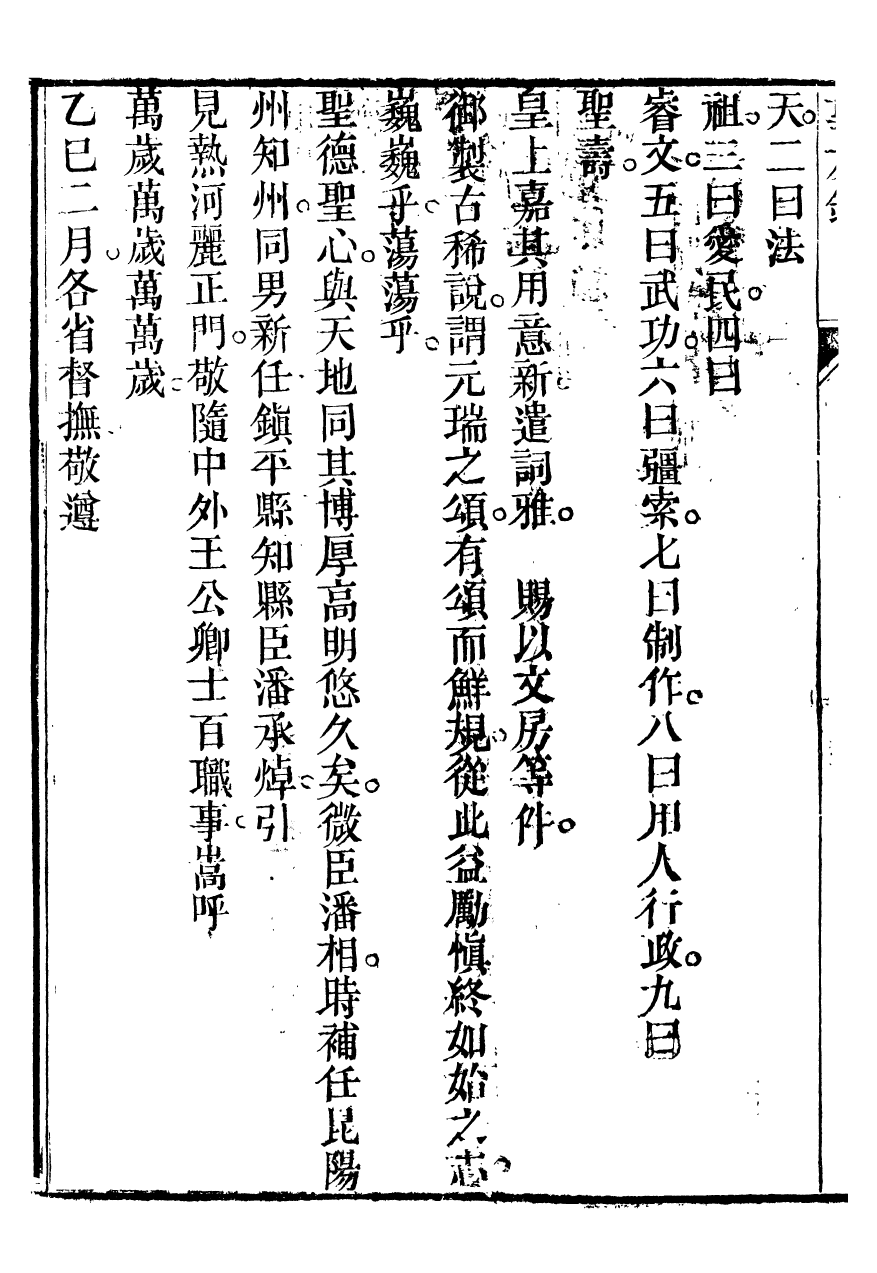 天。二曰法
祖。三曰愛民。四曰
睿文。五曰武功。六曰疆索。七曰制作。八曰用人行政。九曰
聖壽。
皇上嘉其用意新遣詞雅。　賜以文房等件。
御製古稀說。謂元瑞之頌。有頌而鮮規。從此益勵愼終如始之志。
巍巍乎。蕩蕩乎。
聖德聖心。與天地同其博厚高明悠久矣。微臣潘相。時補任昆陽
州知州。同男新任鎭平縣知縣臣潘承焯。引
見熱河麗正門。敬隨中外王公卿士百職事。嵩呼
萬歲萬歲萬萬歲。
乙巳二月。各省督撫。敬遵